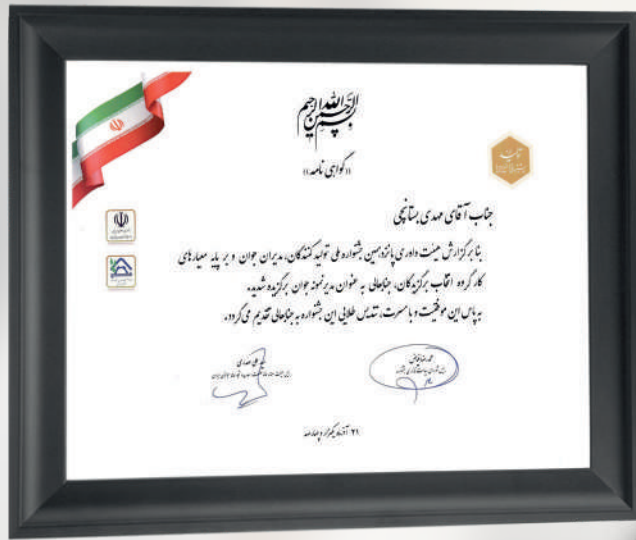 بسم الله الرحمن الرحیم
«گواهی نامه»
جناب آقای مهدی بستانچی
بنا بر گزارش هیئت داوری پانزدهمین جشنواره ملی تولید کنندگان، مدیران جوان و بر پایه معیارهای
کار گروه انتخاب برگزیدگان، جنابعالی به عنوان مدیر نمونه جوان برگزیده شدید.
به پاس این موفقیت و با مسرت، تندیس طلایی این جشنواره به جنابعالی تقدیم می گردد.
۲۱ آذرماه یکهزار و چهارصد